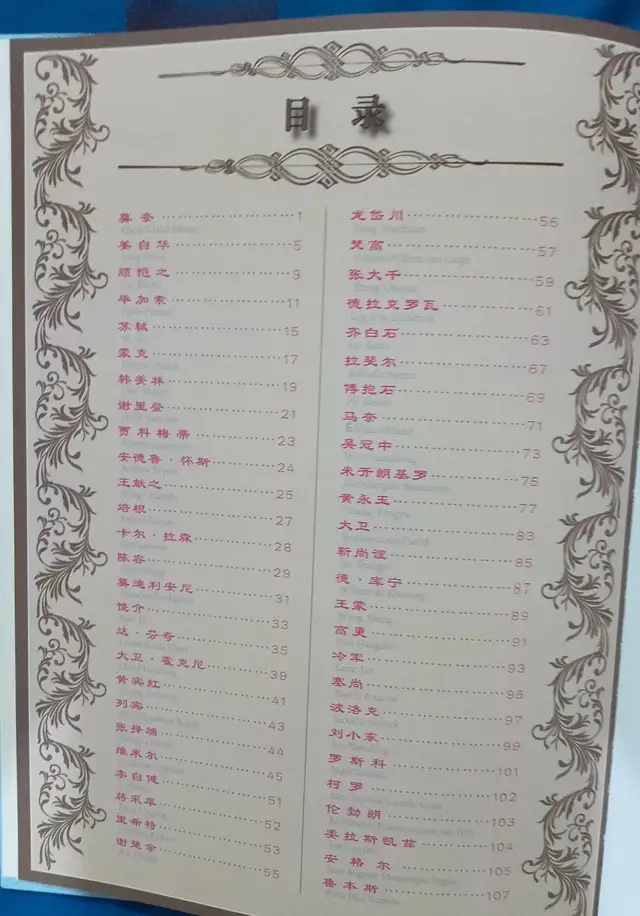 目 录
莫 奈 1
姜自华 5
顾恺之 9
毕加索 11
苏轼 15
蒙克 17
韩美林 19
谢里登 21
贾科梅蒂 23
安德鲁·怀斯 24
王献之 25
培根 27
卡尔·拉森 28
陈容 29
莫迪利安尼 31
饶介 33
达·芬奇 35
大卫·霍克尼 39
黄宾虹 41
列宾 43
张择端 44
维米尔 45
李自健 51
蒋采苹 52
里希特 53
谢楚余 55
龙岱川 56
梵高 57
张大千 59
德拉克罗瓦 61
齐白石 63
拉斐尔 67
傅抱石 69
马奈 71
吴冠中 73
米开朗基罗 75
黄永玉 77
大卫 83
靳尚谊 85
德·库宁 87
王蒙 89
高更 91
冷军 93
塞尚 95
波洛克 97
刘小东 99
罗斯科 101
柯罗 103
伦勃朗 103
委拉斯凯兹 104
安格尔 105
鲁本斯 107